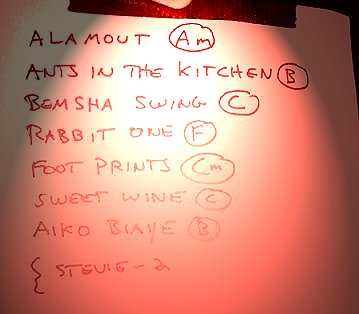 ALAMOUT Am
ANTS IN THE KITCHEN B
BEMSHA SWING C
RABBIT ONE F
FOOT PRINTS Cm
SWEET WINE C
AIKO BIAYE B
{ STEVIE - 2